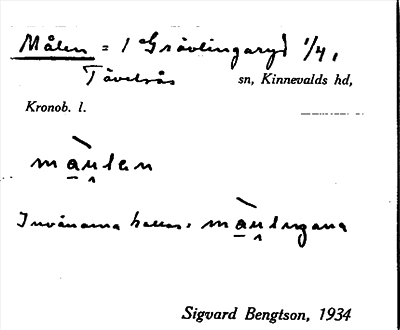 Målen = 1 Grävlingaryd 1/4,
Tävelsås sn, Kinnevalds hd,
Kronob. l.
ma̱u̯len
Invånarna kallas: ma̱u̯lngana
Sigvard Bengtson, 1934